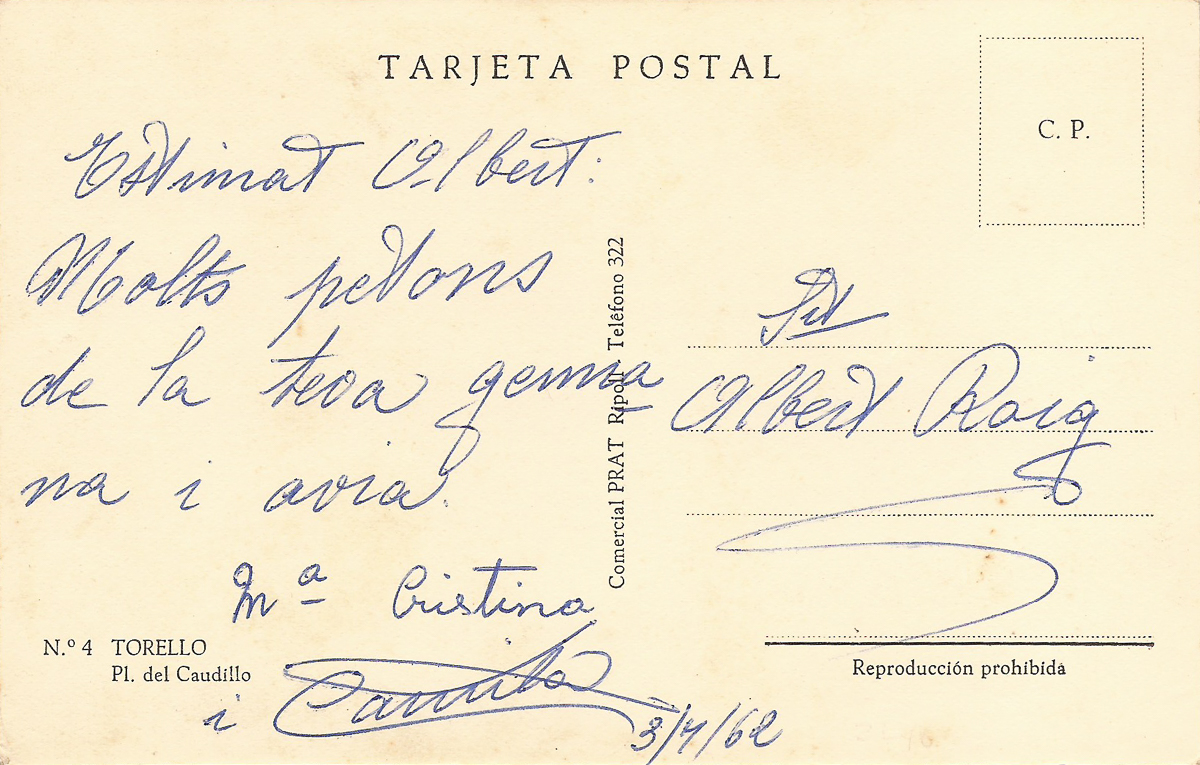 TARJETA POSTAL
C. P.
Estimat Albert:
Molts petons
de la teva germa
na i avia.
Mª Cristina
i Camila
3/7/62
Comercial PRAT Ripoll - Teléfono 322
Srt
Albert Roig
N.º 4 TORELLO
Pl. del Caudillo
Reproducción prohibida